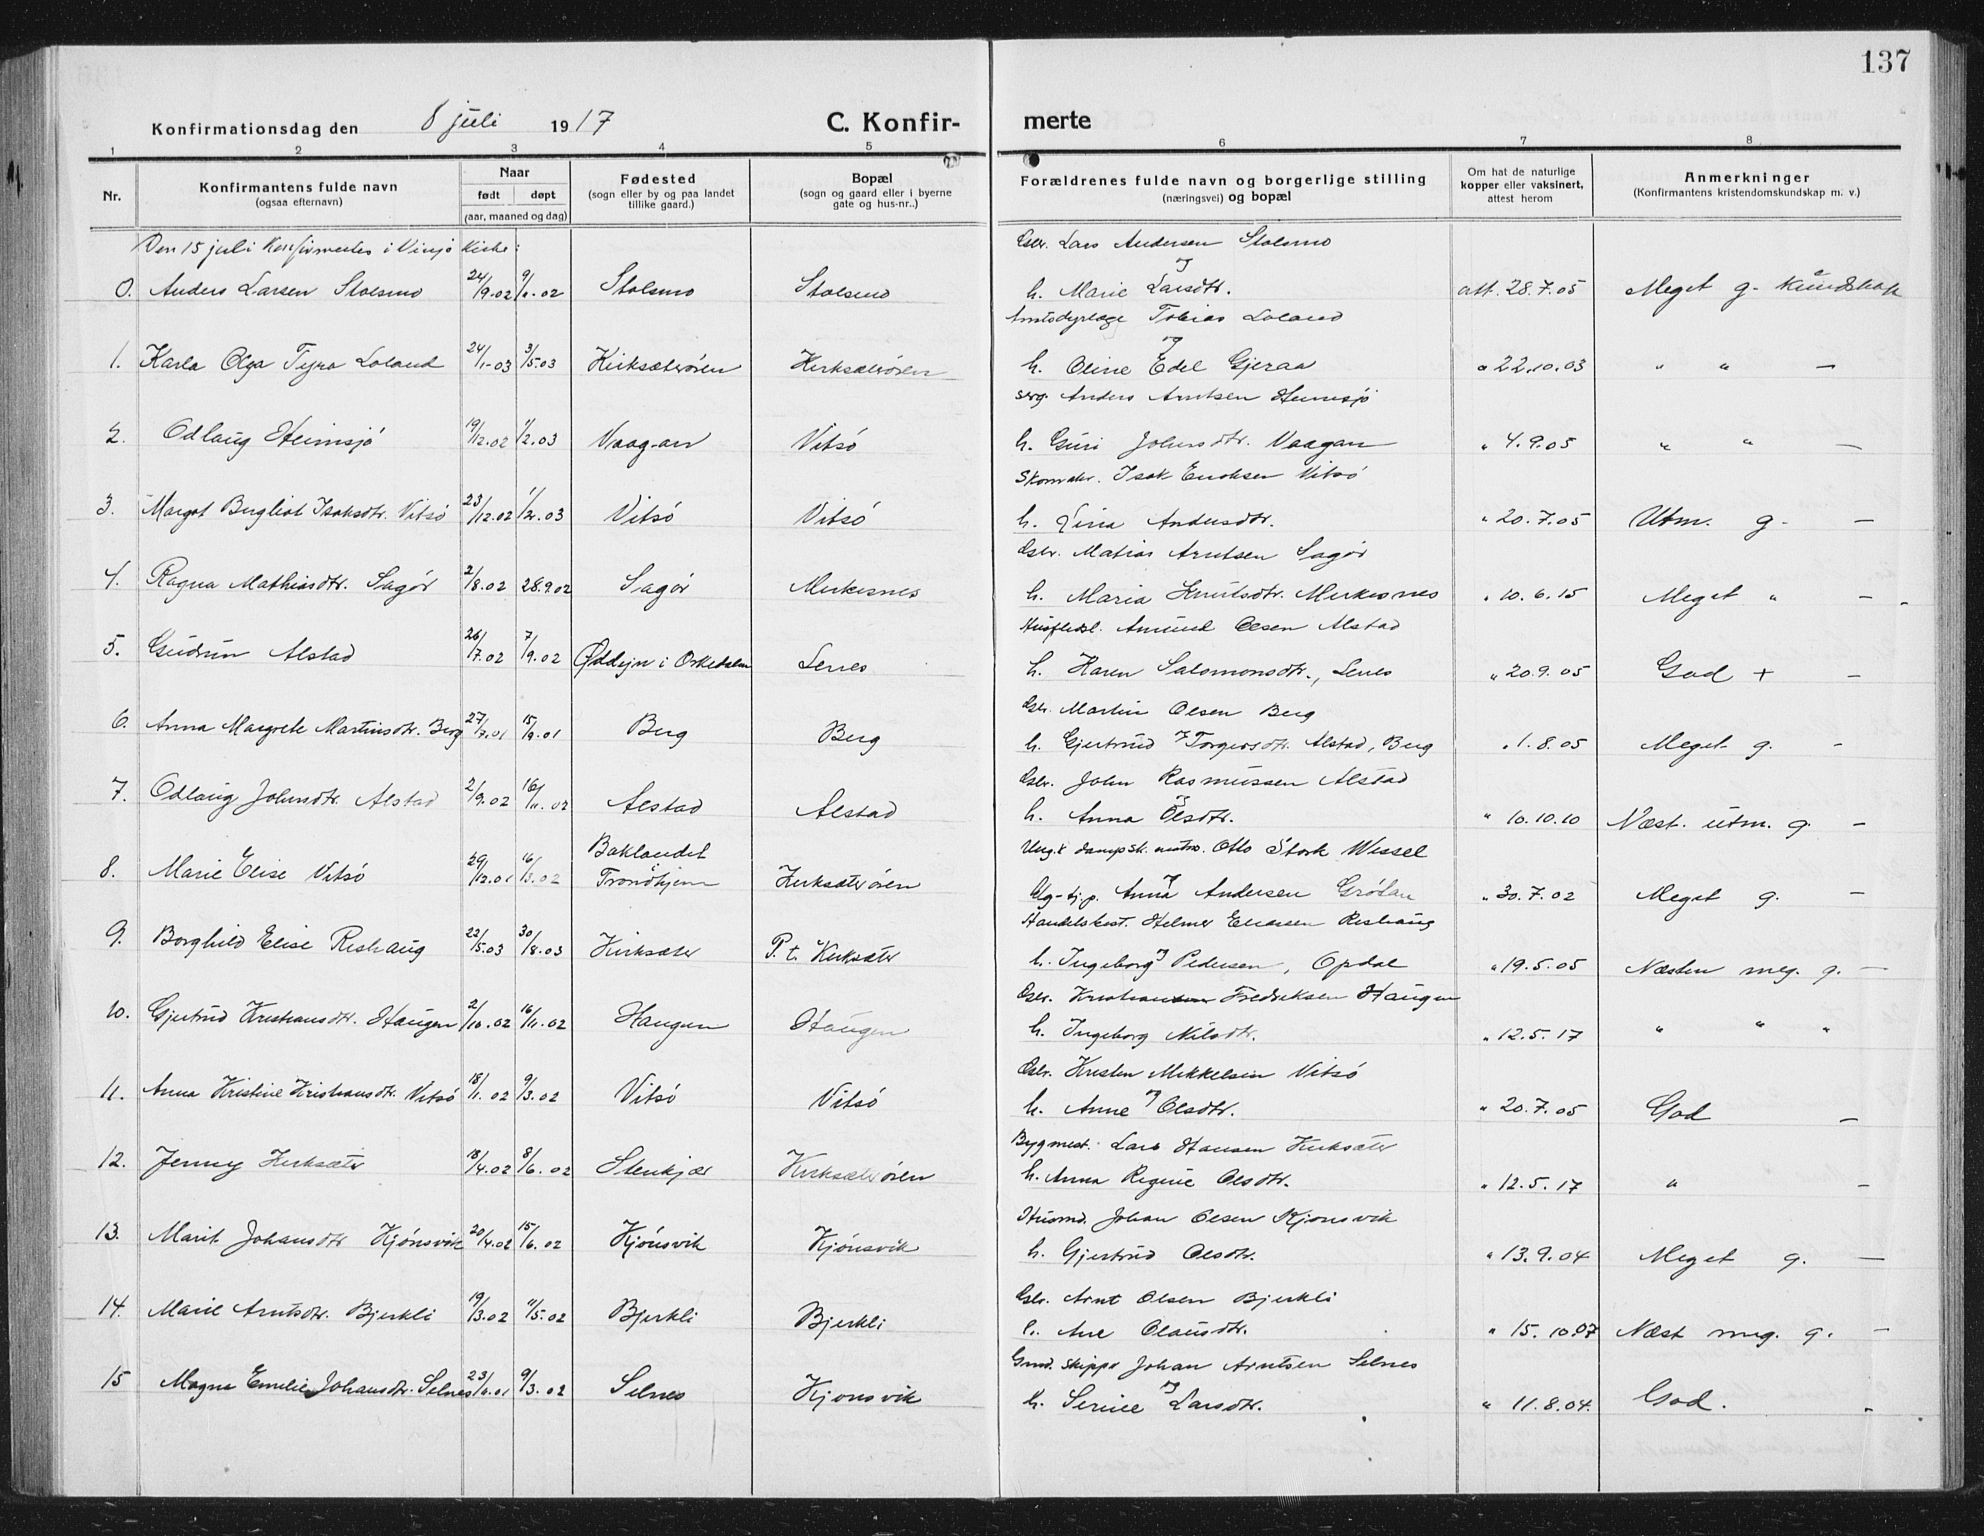 137
Konfirmationsdag den 8 juli 1917 C. Konfir- merte
1 2 3 4 5 6 7 8
Nr. Konfirmantens fulde navn (ogsaa efternavn) Naar født døpt (aar, maaned og dag) Fødested (sogn eller by og paa landet tillike gaard.) Bopæl (sogn og gaard eller i byerne gate og hus-nr..) Forældrenes fulde navn og borgerlige stilling (næringsvei) og bopæl Om hat de naturlige kopper eller vaksinert, attest herom Anmerkninger (Konfirmantens kristendomskundskap m. v.)
Den 15 juli konfirmertes i Vinje Kirke:
Gbr. Lars Andersen Stolsmo
0. Anders Larsen Stolsmo 24/9.02 Stolsmo Stolsmo og h. Marie Larsdtr. att. 28.7.05 Meget g. kundskap
Amtsdyrlæge Tobias Loland
1. Karla Olga Tyra Loland 24/1-03 3/5.03 Kirksæterøren Kirksæterøren og h. Oline Edel Gjeraa " 22.10.03 " " —
Serg. Anders Arntsen Heimsjø
2. Odlaug Heimsjø 19/12.02 1/2.03 Vaagan Vitsø h. Guri Johnsdtr. Vaagan " 4.9.05 " " —
Skomaker. Isak Eriksen Vitsø
3. Margot Bergliot Isaksdtr. Vitsø 23/12.02 1/2.03 Vitsø Vitsø h. Lina Andersdtr. " 20.7.05 Utm. g. —
Gbr. Matias Arntsen Sagør
4. Ragna Mathiasdtr. Sagør 2/8.02 28.9.02 Sagør Merkesnes h. Maria Knutsdtr. Merkesnes " 10.6.15 Meget " —
Amund Olsen Alstad
5. Gudrun Alstad 26/7.02 7/9.02 i Orkedalen Lenes h. Karen Salomonsdtr., Lenes " 20.9.05 God + —
Gbr. Martin Olsen Berg
6. Anna Margrete Martinsdtr. Berg 27/7.01 15/9.01 Berg Berg h. Gjertrud Torgersdtr. Alstad, Berg " 1.8.05 Meget g. —
Gbr. John Rasmussen Alstad
7. Odlaug Johnsdtr. Alstad 2/9.02 16/11.02 Alstad Alstad og h. Anna Olsdtr. " 10.10.10 Næst. utm. g. —
Ung.k dampsk. Otto Stork Wessel
8. Marie Elise Vitsø 29/12.01 16/3.02 Baklandet Trondhjem Kirksæterøren og tj.p. Anna Andersen Grøtan " 30.7.02 Meget g. —
Handelsbest. Helmer Reshaug
9. Borghild Elise Reshaug 22/5.03 30/8.03 Kirksæter P.t. Kirksæter og h. Ingeborg Pedersen, Opdal " 19.5.05 Næsten meg. g. —
Gbr. Kristian Fredriksen Haugen
10. Gjertrud Kristiansdtr. Haugen 2/10.02 16/11.02 Haugen Haugen h. Ingeborg Nilsdtr. " 12.5.17 " " "
Gbr. Kristen Mikkelsen Vitsø
11. Anna Kristine Kristiansdtr. Vitsø 18/1.02 9/3.02 Vitsø Vitsø og h. Anne Olsdtr. " 20.7.05 God —
Bygmest. Lars Hansen Kirksæter
12. Jenny Kirksæter 18/4.02 8/6.02 Stenkjær Kirksæterøren h. Anna Regine Olsdtr. " 12.5.17 " —
Husmd. Johan Olsen Kjønsvik
13. Marit Johansdtr Kjønsvik 20/4.02 15/6.02 Kjønsvik Kjønsvik h. Gjertrud Olsdtr. " 13.9.04 Meget g. —
Gbr. Arnt Olsen Bjerkli
14. Marie Arntsdtr. Bjerkli 19/3.02 11/5.02 Bjerkli Bjerkli h. Ane Olausdtr. " 15.10.07 Næst meg. g. —
skipper Johan Arntsen Selnes
15 Magna Emelie Johansdtr. Selnes 9/3.02 Selnes Kjønsvik og h. Serine Larsdtr. " 11.8.04. God. "